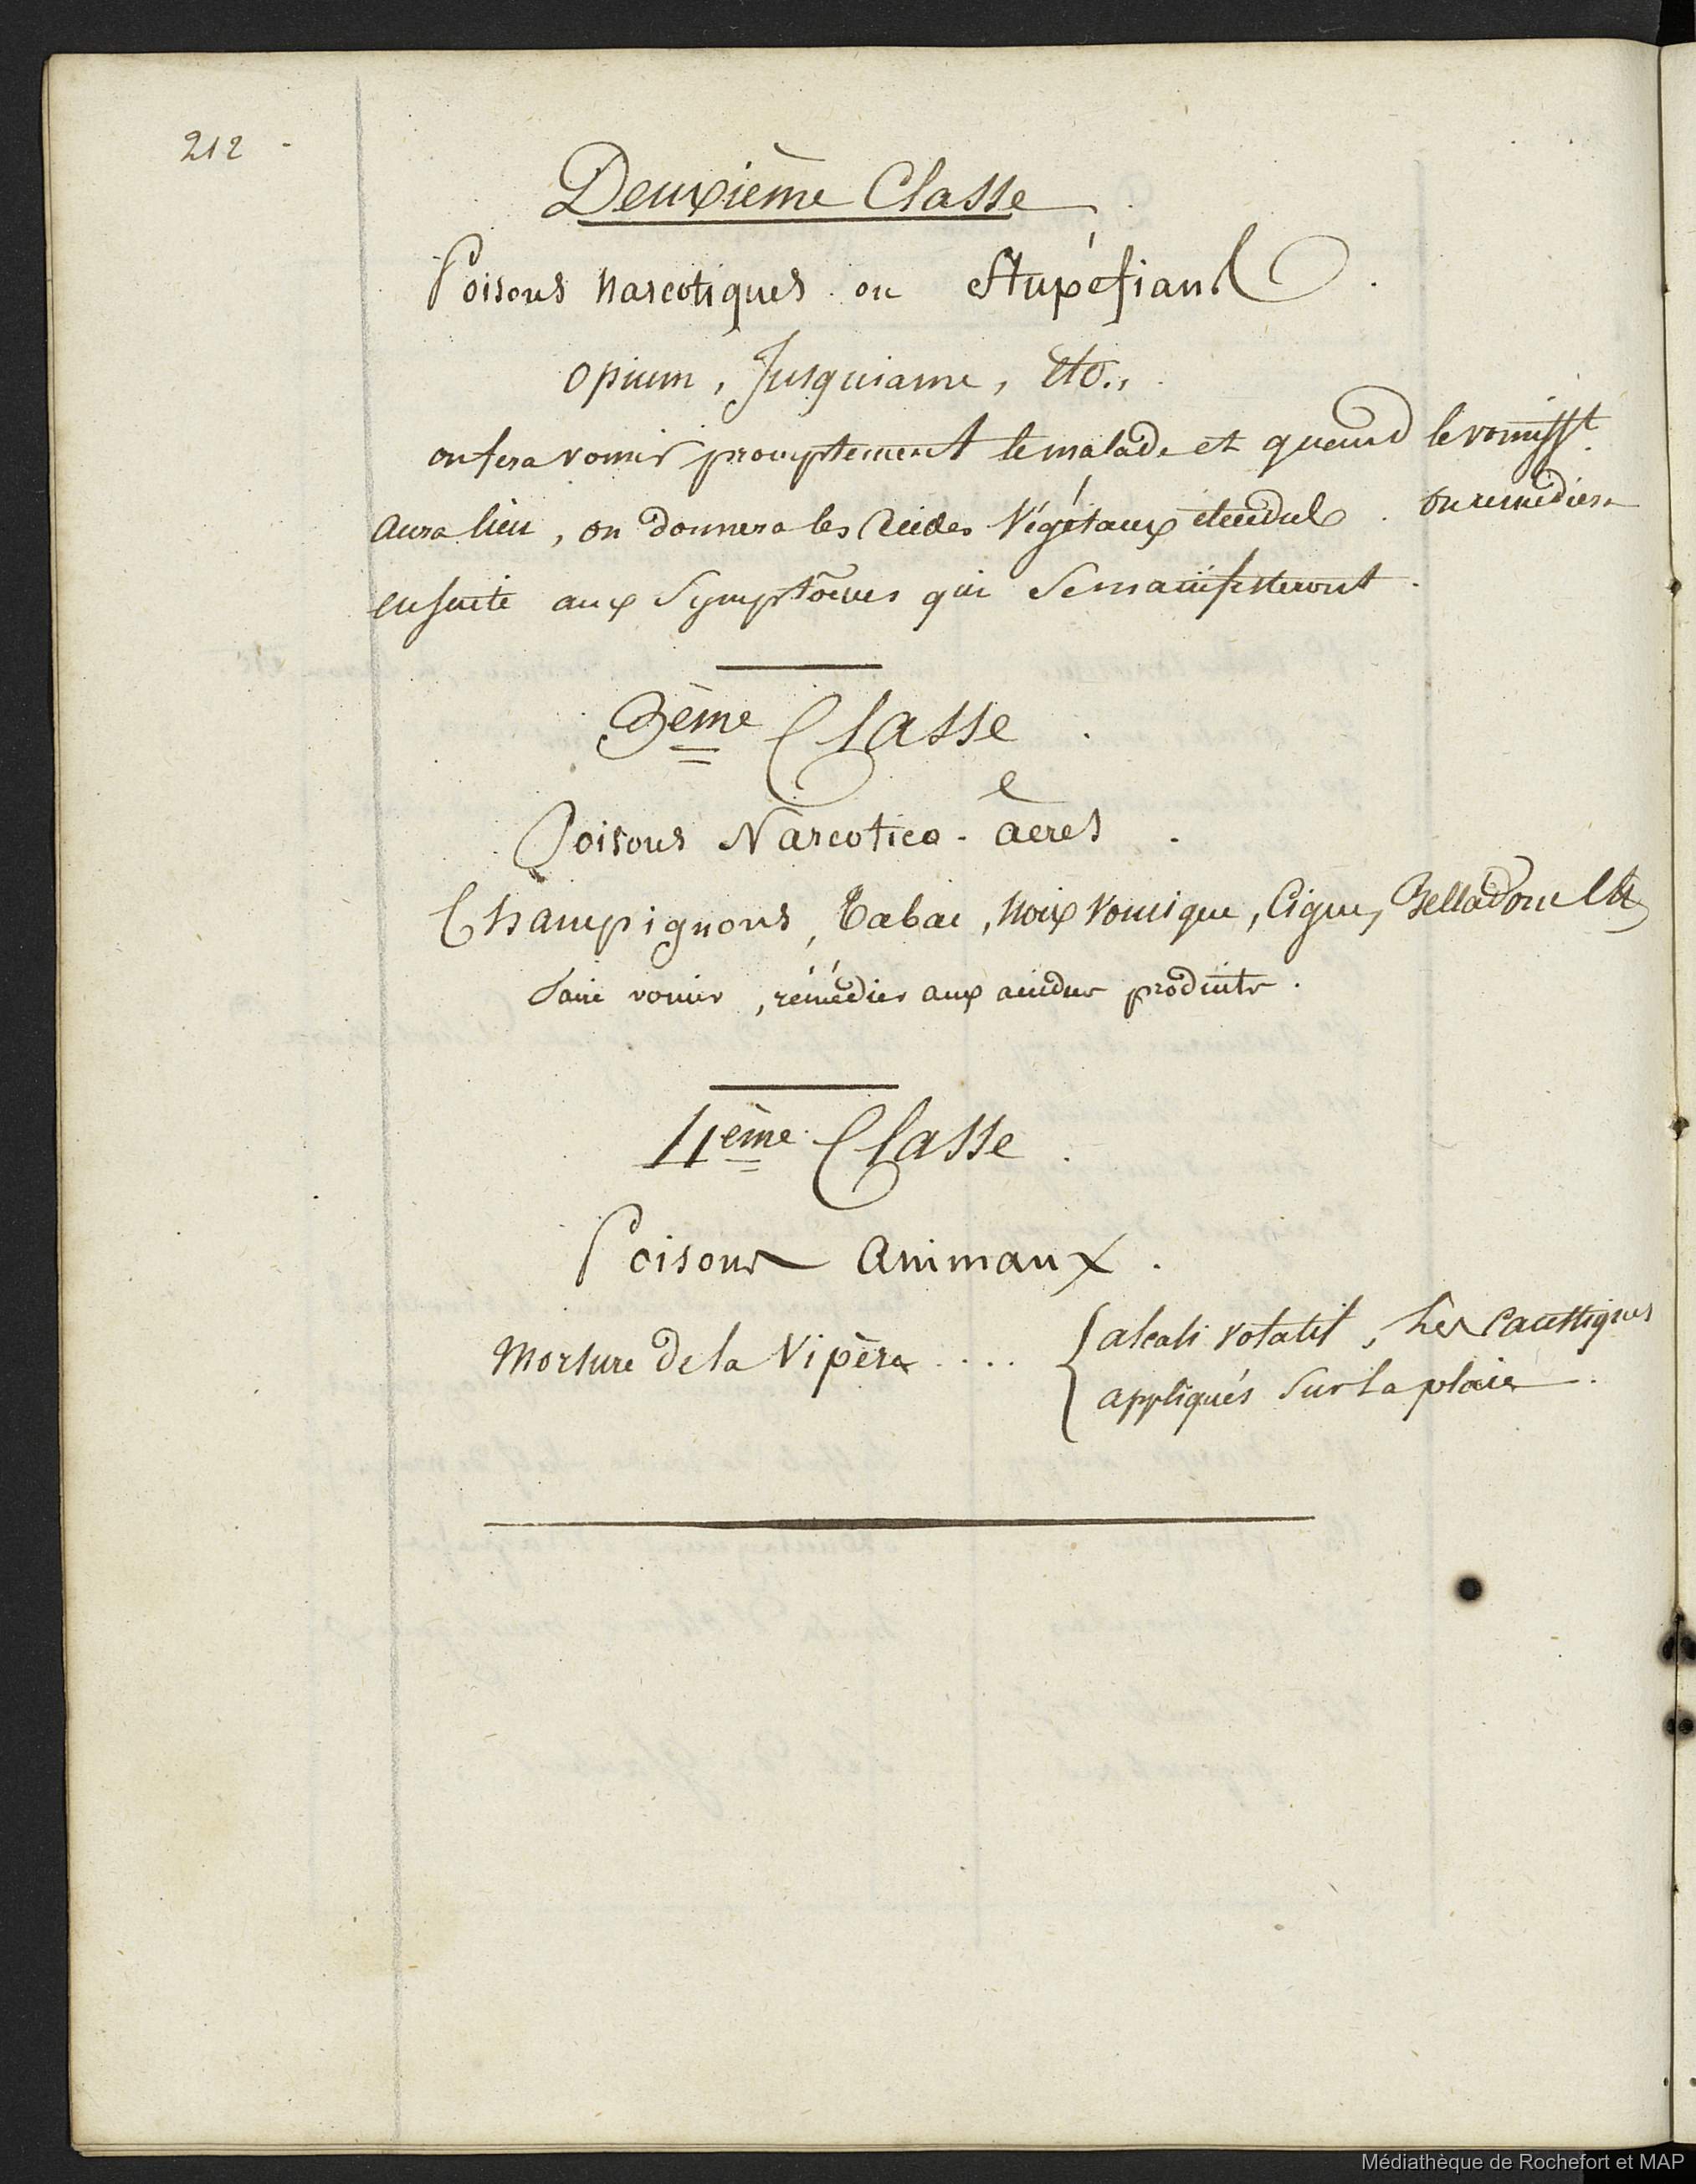 212 -
Deuxième Classe
Poisons narcotiques ou Stupéfians.
opium, Jusquiame, etc.,
on fera vomir promptement le malade et quand le vomisst.
aura lieu, on donnera les acides Végétaux étendus. on remédiera
ensuite aux Symptômes qui se manifesteront.
3ème Classe.
Poisons Narcotico-âcres.
Champignons, Tabac, Noix Vomique, Cigue, Belladone etc
faire vomir, rémédier aux accidens produits.
4ème Classe.
Poisons animaux.
Morsure de la Vipère.... { alcali volatil, les caustiques
appliqués sur la plaie.
Médiathèque de Rochefort et MAP